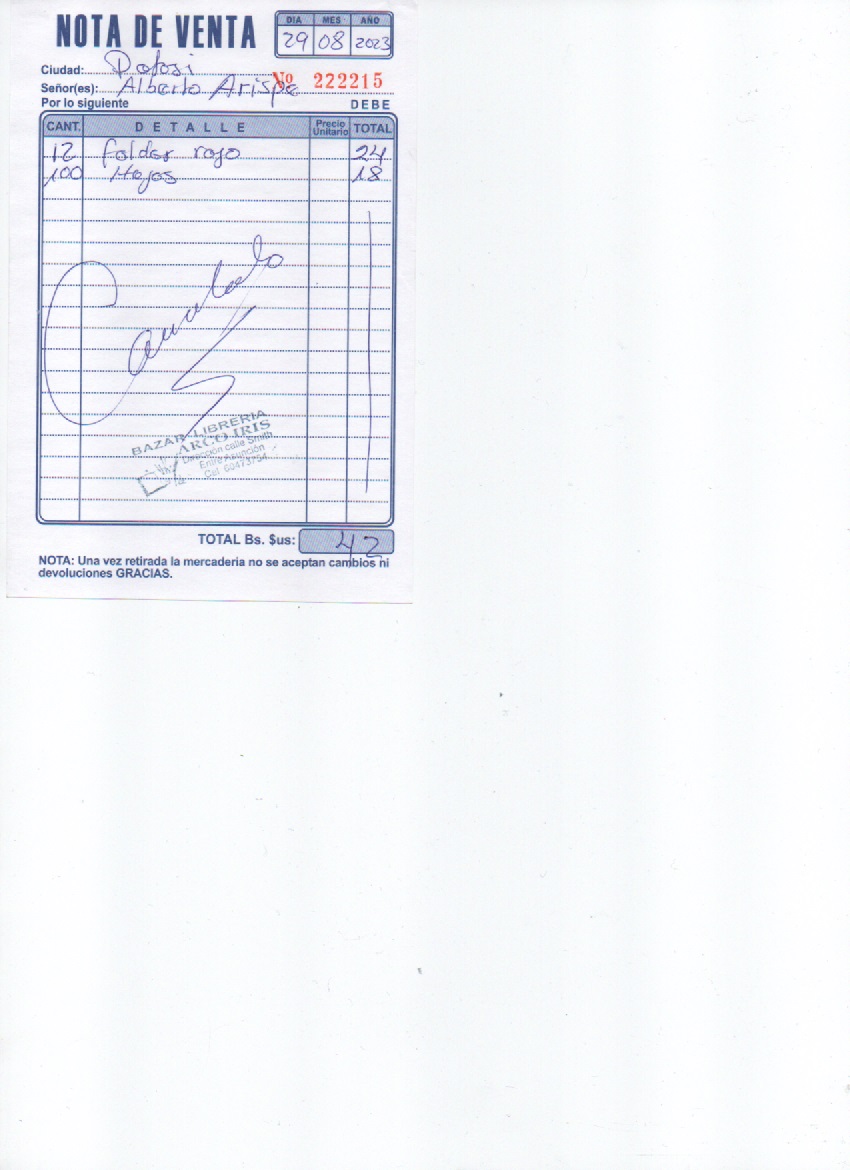 NOTA DE VENTA
DIA MES AÑO
29 08 2023
Ciudad: Potosi
Nº 222215
Señor(es): Alberto Arispe
Por lo siguiente DEBE
CANT. DETALLE Precio Unitario TOTAL
12 folder rojo 24
100 Hojas 18
Cancelado
BAZAR LIBRERIA
ARCO IRIS
Dirección calle Smith
Entre Asunción
Cel.
TOTAL Bs. $us: 42
NOTA: Una vez retirada la mercadería no se aceptan cambios ni
devoluciones GRACIAS.